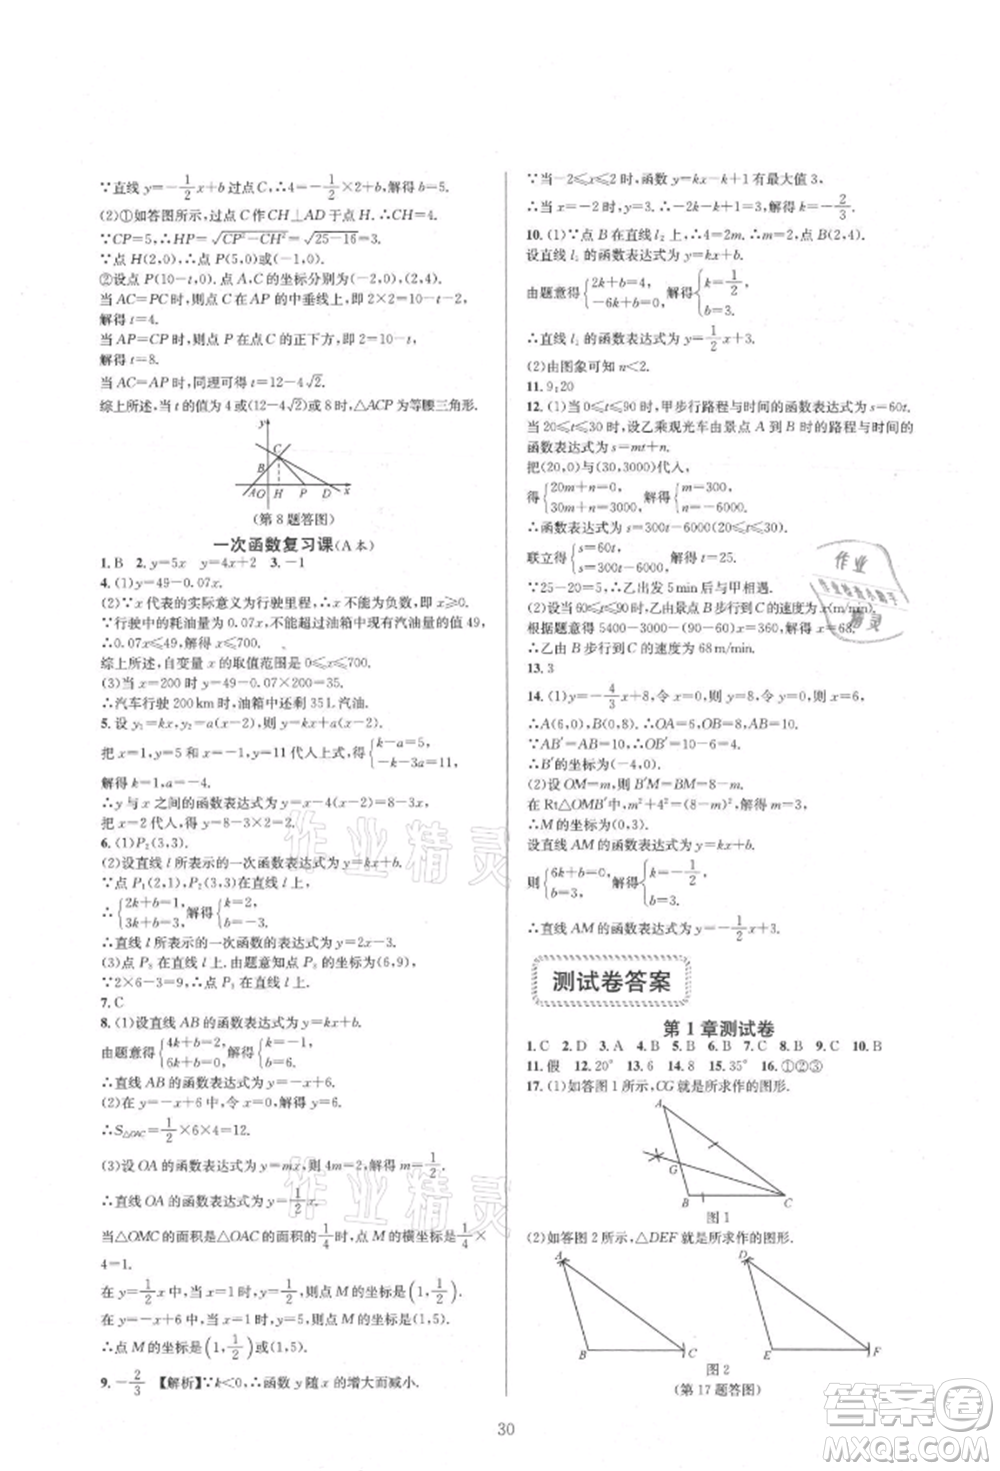 ∵直线 y=-1/2x+b 过点 C,∴4=-1/2×2+b,解得 b=5.
(2)①如答图所示,过点 C 作 CH⊥AD 于点 H.∴CH=4.
∵CP=5,∴HP=√(CP²-CH²)=√(25-16)=3.
∵点 H(2,0),∴点 P(5,0).
②设点 P(10-t,0).点 A,C 的坐标分别为(-2,0),(2,4).
当 AC=PC 时,则点 C 在 AP 的中垂线上,即 2×2=10-t-2,
解得 t=4.
当 AP=CP 时,则点 P 在点 C 的正下方,即 2=10-t,
解得 t=8.
当 AC=AP 时,同理可得 t=12-4√2.
综上所述,当 t 的值为 4 或(12-4√2)或 8 时,△ACP 为等腰三角形.
y
C
B
A O H P D x
(第 8 题答图)
一次函数复习课(A 本)
1.B 2.y=5x y=4x+2 3.-1
4.(1)y=49-0.07x.
(2)∵x 代表的实际意义为行驶里程,∴x 不能为负数,即 x≥0.
∵行驶中的耗油量为 0.07x,∴不能超过油箱中现有汽油量的值 49,
∴0.07x≤49,解得 x≤700.
综上所述,自变量 x 的取值范围是 0≤x≤700.
(3)当 x=200 时,y=49-0.07×200=35.
∴汽车行驶 200 km 时,油箱中还剩 35 L 汽油.
5.设 y₁=kx,y₂=a(x-2),则 y=kx+a(x-2).
把 x=1,y=5 和 x=-1,y=11 代人上式,可得{k-a=5, -k-3a=11.
解得 k=1,a=-4.
∴y 与 x 之间的函数表达式为 y=x-4(x-2)=-3x+8.
把 x=2 代人,得 y=-3×2+8=2.
6.(1)P₂(3,3).
(2)设直线 l 所表示的一次函数表达式为 y=kx+b.
∵点 P₁(2,1),P₂(3,3)在直线 l 上,
∴{2k+b=1, 3k+b=3,解得{k=2, b=-3.
∴直线 l 所表示的一次函数的表达式为 y=2x-3.
(3)点 P₃ 在直线 l 上.由题意知点 P₃ 的坐标为(6,9),
∵2×6-3=9,∴点 P₃ 在直线 l 上.
7.C
8.(1)设直线 AB 的函数表达式为 y=kx+b.
由题意得{4k+b=2, 6k+b=0,解得{k=-1, b=6.
∴直线 AB 的函数表达式为 y=-x+6.
(2)在 y=-x+6 中,令 x=0,解得 y=6,
∴S△OAC=1/2×6×4=12.
(3)设 OA 的函数表达式为 y=mx,则 4m=2,解得 m=1/2.
∴直线 OA 的函数表达式为 y=1/2x.
当△OMC 的面积是△OAC 的面积的 1/4 时,点 M 的横坐标为 1/4×
4=1.
在 y=1/2x 中,当 x=1 时,y=1/2,则点 M 的坐标是(1,1/2).
在 y=-x+6 中,当 x=1 时,y=5,则点 M 的坐标是(1,5).
∴点 M 的坐标是(1,1/2)或(1,5).
9.-2/3 【解析】∵k<0,∴函数 y 随 x 的增大而减小.
∵当-2≤x≤2 时,函数 y=kx-k+1 有最大值 3,
∴当 x=-2 时,y=3,∴3=-2k-k+1,解得 k=-2/3.
10.(1)∵点 B 在直线 l₂ 上,∴4=2m.∴m=2,∴点 B(2,4).
设直线 l₁ 的函数表达式为 y=kx+b.
由题意得{2k+b=4, -6k+b=0,解得{k=1/2, b=3.
∴直线 l₁ 的函数表达式为 y=1/2x+3.
(2)由图象可知 n<2.
11.9:20
12.(1)当 0≤t≤90 时,甲步行路程与时间的函数表达式为 s=60t.
当 20≤t≤30 时,设乙乘观光车由景点 A 到 B 时的路程与时间的
函数表达式为 s=mt+n.
把(20,0)与(30,3000)代人,
得{20m+n=0, 30m+n=3000,解得{m=300, n=-6000.
∴函数表达式为 s=300t-6000(20≤t≤30).
联立得{s=60t, s=300t-6000,解得{t=25, s=1500.
∵25-20=5,∴乙出发 5 min 后与甲相遇.
(2)设当 60≤t≤90 时,乙步行由景点 B 到 C 的速度为 x(m/min).
根据题意得 5400-3000-(90-60)x=360,解得 x=68.
∴乙由 B 到 C 的速度为 68 m/min.
13.3
14.(1)y=-4/3x+8,令 x=0,则 y=8,令 y=0,则 x=6,
∴A(6,0),B(0,8).∴OA=6,OB=8,AB=10.
∵AB′=AB=10,∴OB′=10-6=4.
∴B′的坐标为(-4,0).
(2)设 OM=m,则 B′M=BM=8-m.
在 Rt△OMB′中,m²+4²=(8-m)²,解得 m=3,
∴M 的坐标为(0,3).
设直线 AM 的函数表达式为 y=kx+b,
则{6k+b=0, b=3,解得{k=-1/2, b=3.
∴直线 AM 的函数表达式为 y=-1/2x+3.
测试卷答案
第 1 章测试卷
1.C 2.D 3.A 4.B 5.B 6.B 7.C 8.B 9.C 10.B
11.假 12.20° 13.6 14.8 15.35° 16.①②③
17.(1)如答图 1 所示,CG 就是所求作的图形.
A
G
B C
图 1
(2)如答图 2 所示,△DEF 就是所求作的图形.
A D
B C E F
图 2
(第 17 题答图)
30
作业精灵
作业精灵
作业
精灵
答案圈
MXQE.COM